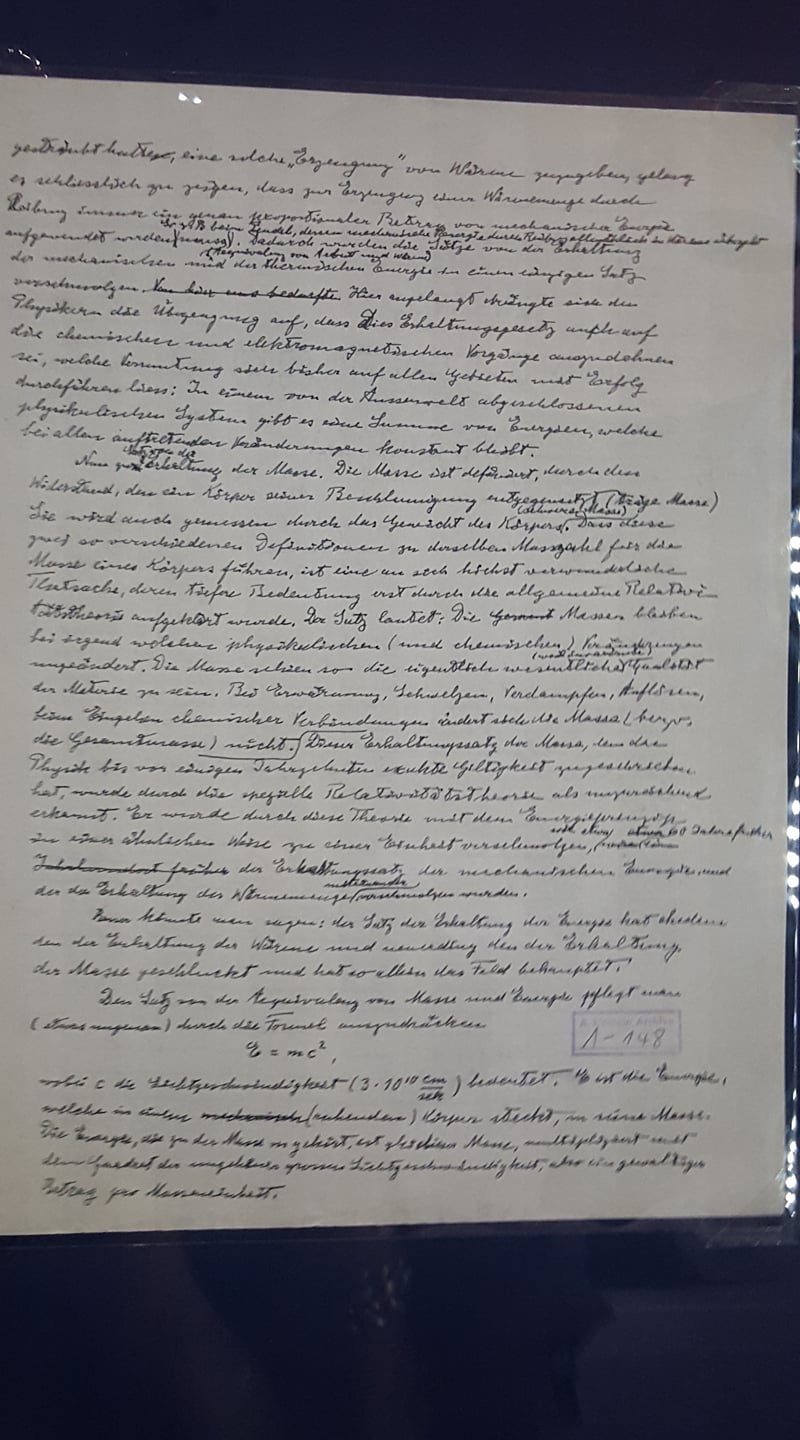 gesträubt hatten, eine solche „Erzeugung" von Wärme zuzugeben, gelang
es schliesslich zu zeigen, dass zur Erzeugung einer Wärmemenge durch
Reibung immer ein genau proportionaler Betrag von mechanischer Energie
So z. B. beim Pendel, dessen mechanische Energie durch Reibung allmählich in Wärme übergeht
aufgewendet werden muss. Dadurch wurden die Sätze von der Erhaltung
(Aequivalenz von Arbeit und Wärme)
der mechanischen und der thermischen Energie in einen einzigen Satz
verschmolzen. Hier angelangt drängte sich den
Physikern die Überzeugung auf, dass dies Erhaltungsgesetz auch auf
die chemischen und elektromagnetischen Vorgänge auszudehnen
sei, welche Vermutung sich bisher auf allen Gebieten mit Erfolg
durchführen liess: In einem von der Aussenwelt abgeschlossenen
physikalischen System gibt es eine Summe von Energien, welche
bei allen auftretenden Veränderungen konstant bleibt.
Satz von der
Nun zur Erhaltung der Masse. Die Masse ist definiert, durch den
Widerstand, den ein Körper seiner Beschleunigung entgegensetzt (träge Masse)
(schwere Masse)
Sie wird auch gemessen durch das Gewicht des Körpers. Dass diese
zwei so verschiedenen Definitionen zu derselben Masszahl für die
Masse eines Körpers führen, ist eine an sich höchst verwunderliche
Thatsache, deren tiefere Bedeutung erst durch die allgemeine Relativi-
tätstheorie aufgeklärt wurde. Der Satz lautet: Die Massen bleiben
bei irgend welchen physikalischen (und chemischen) Veränderungen
ungeändert. Die Masse schien so die eigentlich wesentliche Qualität
der Materie zu sein. Bei Erwärmung, Schmelzen, Verdampfen, Auflösen,
beim Eingehen chemischer Verbindungen ändert sich die Masse (bezw.
die Gesamtmasse) nicht. Dieser Erhaltungssatz der Masse, dem die
Physik bis vor einigen Jahrzehnten exakte Giltigkeit zugeschrieben
hat, wurde durch die spezielle Relativitätstheorie als unzureichend
erkannt. Er wurde durch diese Theorie mit dem Energieprinzip
wie etwa 60 Jahre früher
in einer ähnlichen Weise zu einer Einheit verschmolzen,
Jahrhundert früher der Erhaltungssatz der mechanischen Energie und
miteinander
der der Erhaltung der Wärmemenge verschmolzen wurden.
könnte man sagen: der Satz der Erhaltung der Energie hat ehedem
den der Erhaltung der Wärme und neuerding den der Erhaltung
der Masse geschluckt und hat so allein das Feld behauptet.
Den Satz von der Aequivalenz von Masse und Energie pflegt man
(etwas ungenau) durch die Formel auszudrücken
E = mc²,
1-148
wobei c die Lichtgeschwindigkeit (3·10¹⁰ cm/sek) bedeutet. E ist die Energie,
welche in einem (ruhenden) Körper steckt, m seine Masse.
Die Energie, die zu der Masse m gehört, ist gleich dieser Masse, multipliziert mit
dem Quadrat der ungeheuer grossen Lichtgeschwindigkeit, also ein gewaltiger
Betrag pro Masseneinheit.